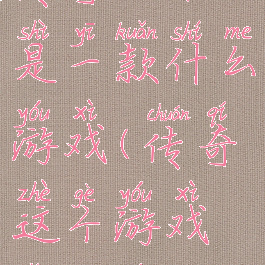 shì yī kuǎn shí me
是一款什么
yóu xì chuán qí
游戏(传奇
zhè gè yóu xì
这个游戏